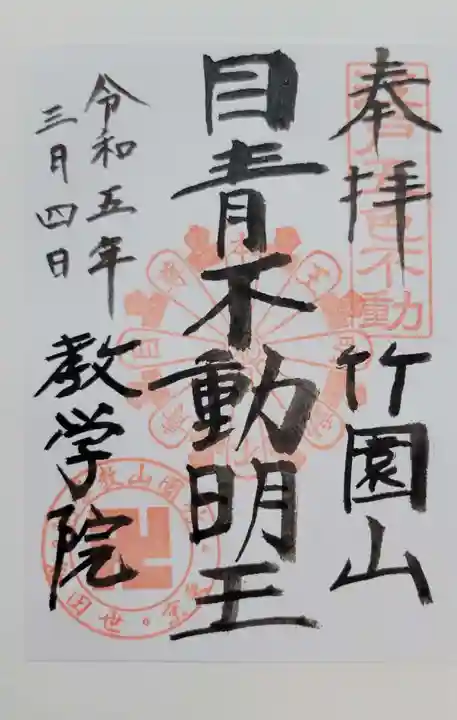 奉拝
竹園山
目青不動明王
令和五年
三月四日
教学院
不動